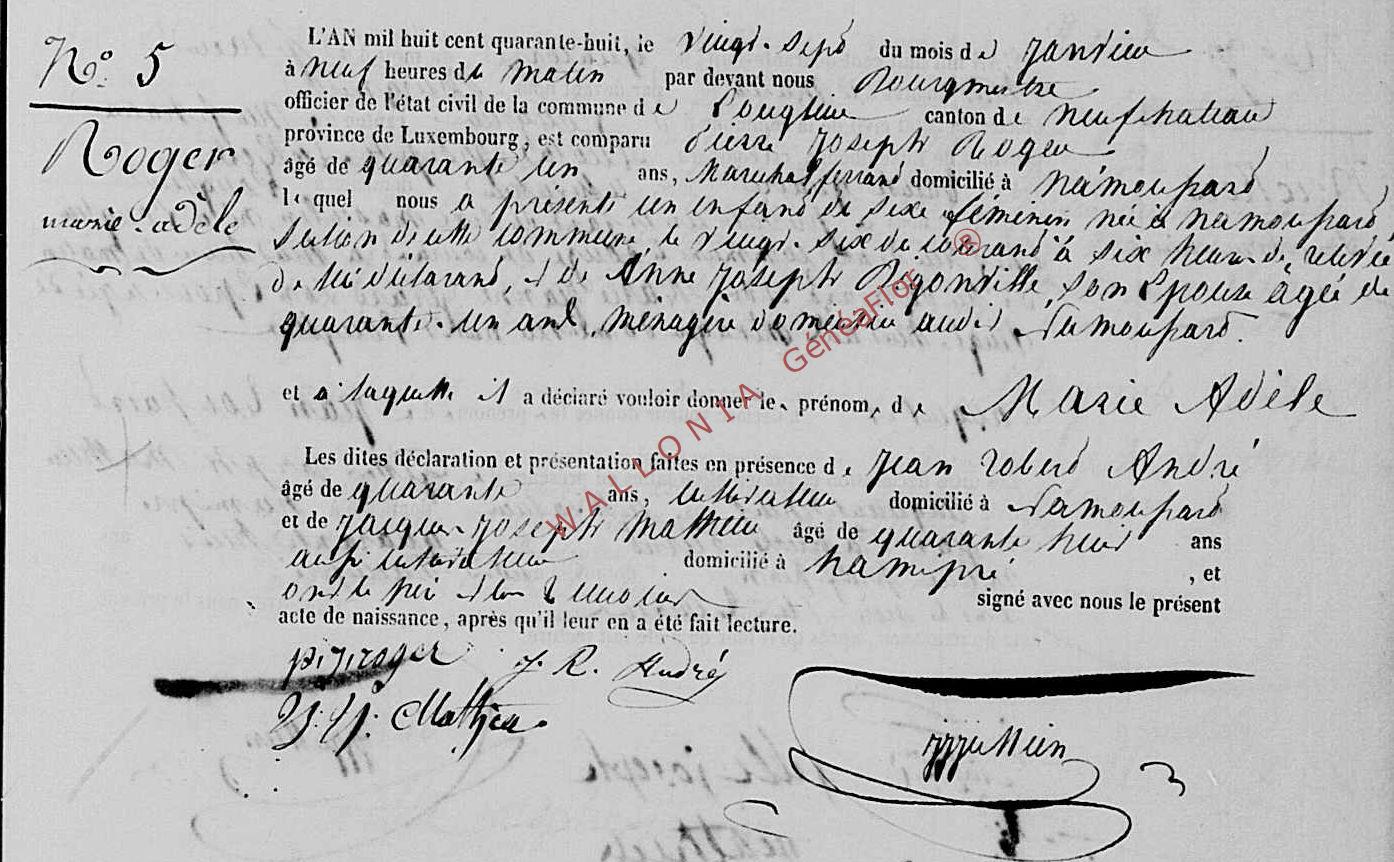 No. 5
Roger
marie-adèle
L'AN mil huit cent quarante-huit, le vingt-sept du mois de Janvier
à neuf heures du matin par devant nous Bourgmestre
officier de l'état civil de la commune de Longlier canton de neufchateau
province de Luxembourg, est comparu Pierre Joseph Roger
âgé de quarante un ans, Marechal ferrand domicilié à namoussard
lequel nous a présenté un enfant de sexe féminin née à namoussard
section de cette commune, le vingt-six du courant à six heures de relevée
de lui déclarant, et de Anne Joseph son Epouse âgée de
quarante-un ans, ménagère domiciliée audit Namoussard.
et à laquelle il a déclaré vouloir donner les prénoms de Marie Adèle
Les dites déclaration et présentation faites en présence de Jean Robert André
âgé de quarante ans, cultivateur domicilié à Namoussard
et de Jacques Joseph Mathieu âgé de quarante huit ans
aussi cultivateur domicilié à hamipré, et
ont le père et les témoins signé avec nous le présent
acte de naissance, après qu'il leur en a été fait lecture.
p. j. roger J. R. André
J. J. Mathieu
WALLONIA GénéaFlor ®